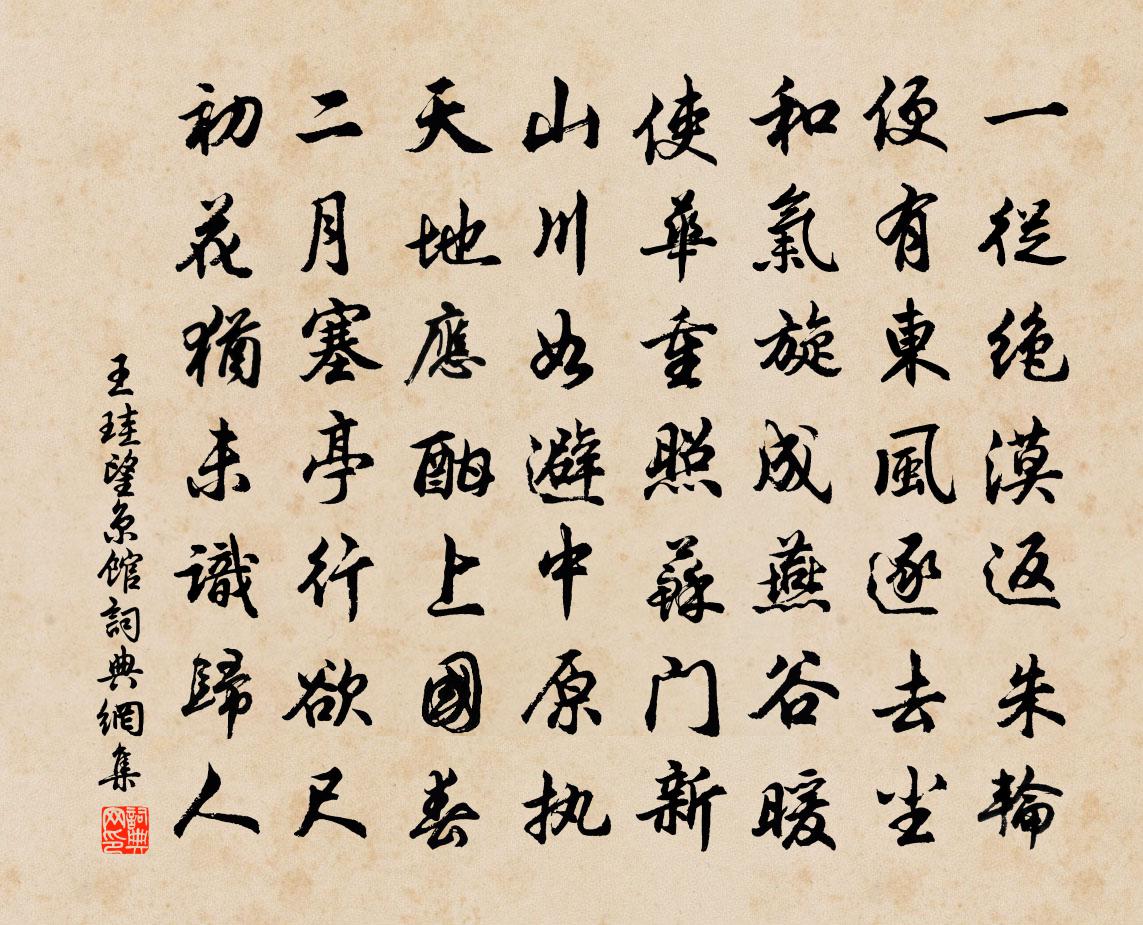 一從绝漠返朱輪
便有東風逐去尘
和氣旋成燕谷暖
使華重照蘇门新
山川如避中原执
天地應酣上國春
二月塞亭行欲尺
初花猶未識歸人
王珪望京館詞典網集
詞典网印